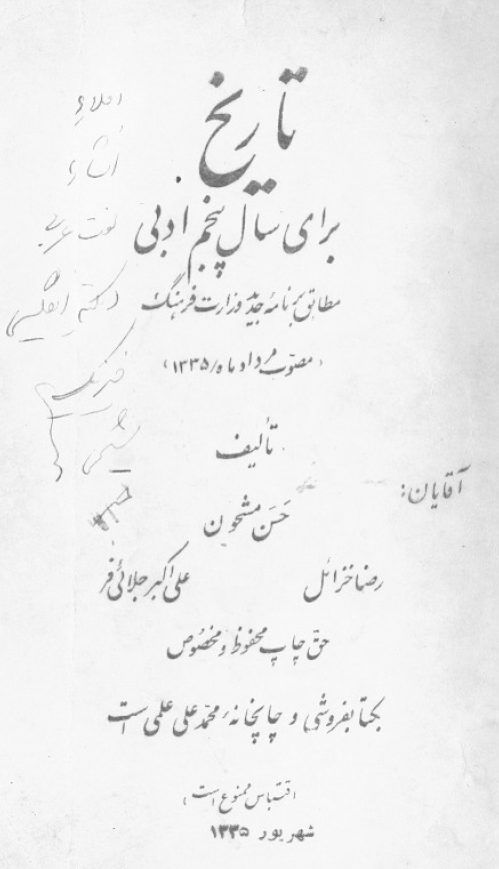 تاریخ
برای سال پنجم ادبی
مطابق برنامه جدید وزارت فرهنگ
(مصوب مرداد ماه/۱۳۳۵)
تألیف
آقایان:
حسن مشحون
رضا خزائل
علی اکبر جلائی فر
حق چاپ محفوظ و مخصوص
بکتابفروشی و چاپخانهٔ محمد علی علمی است
(اقتباس ممنوع است)
شهریور ۱۳۳۵
املاء
انشاء
لغت عربی
دیکته انگلیسی
فیزیک
شیمی